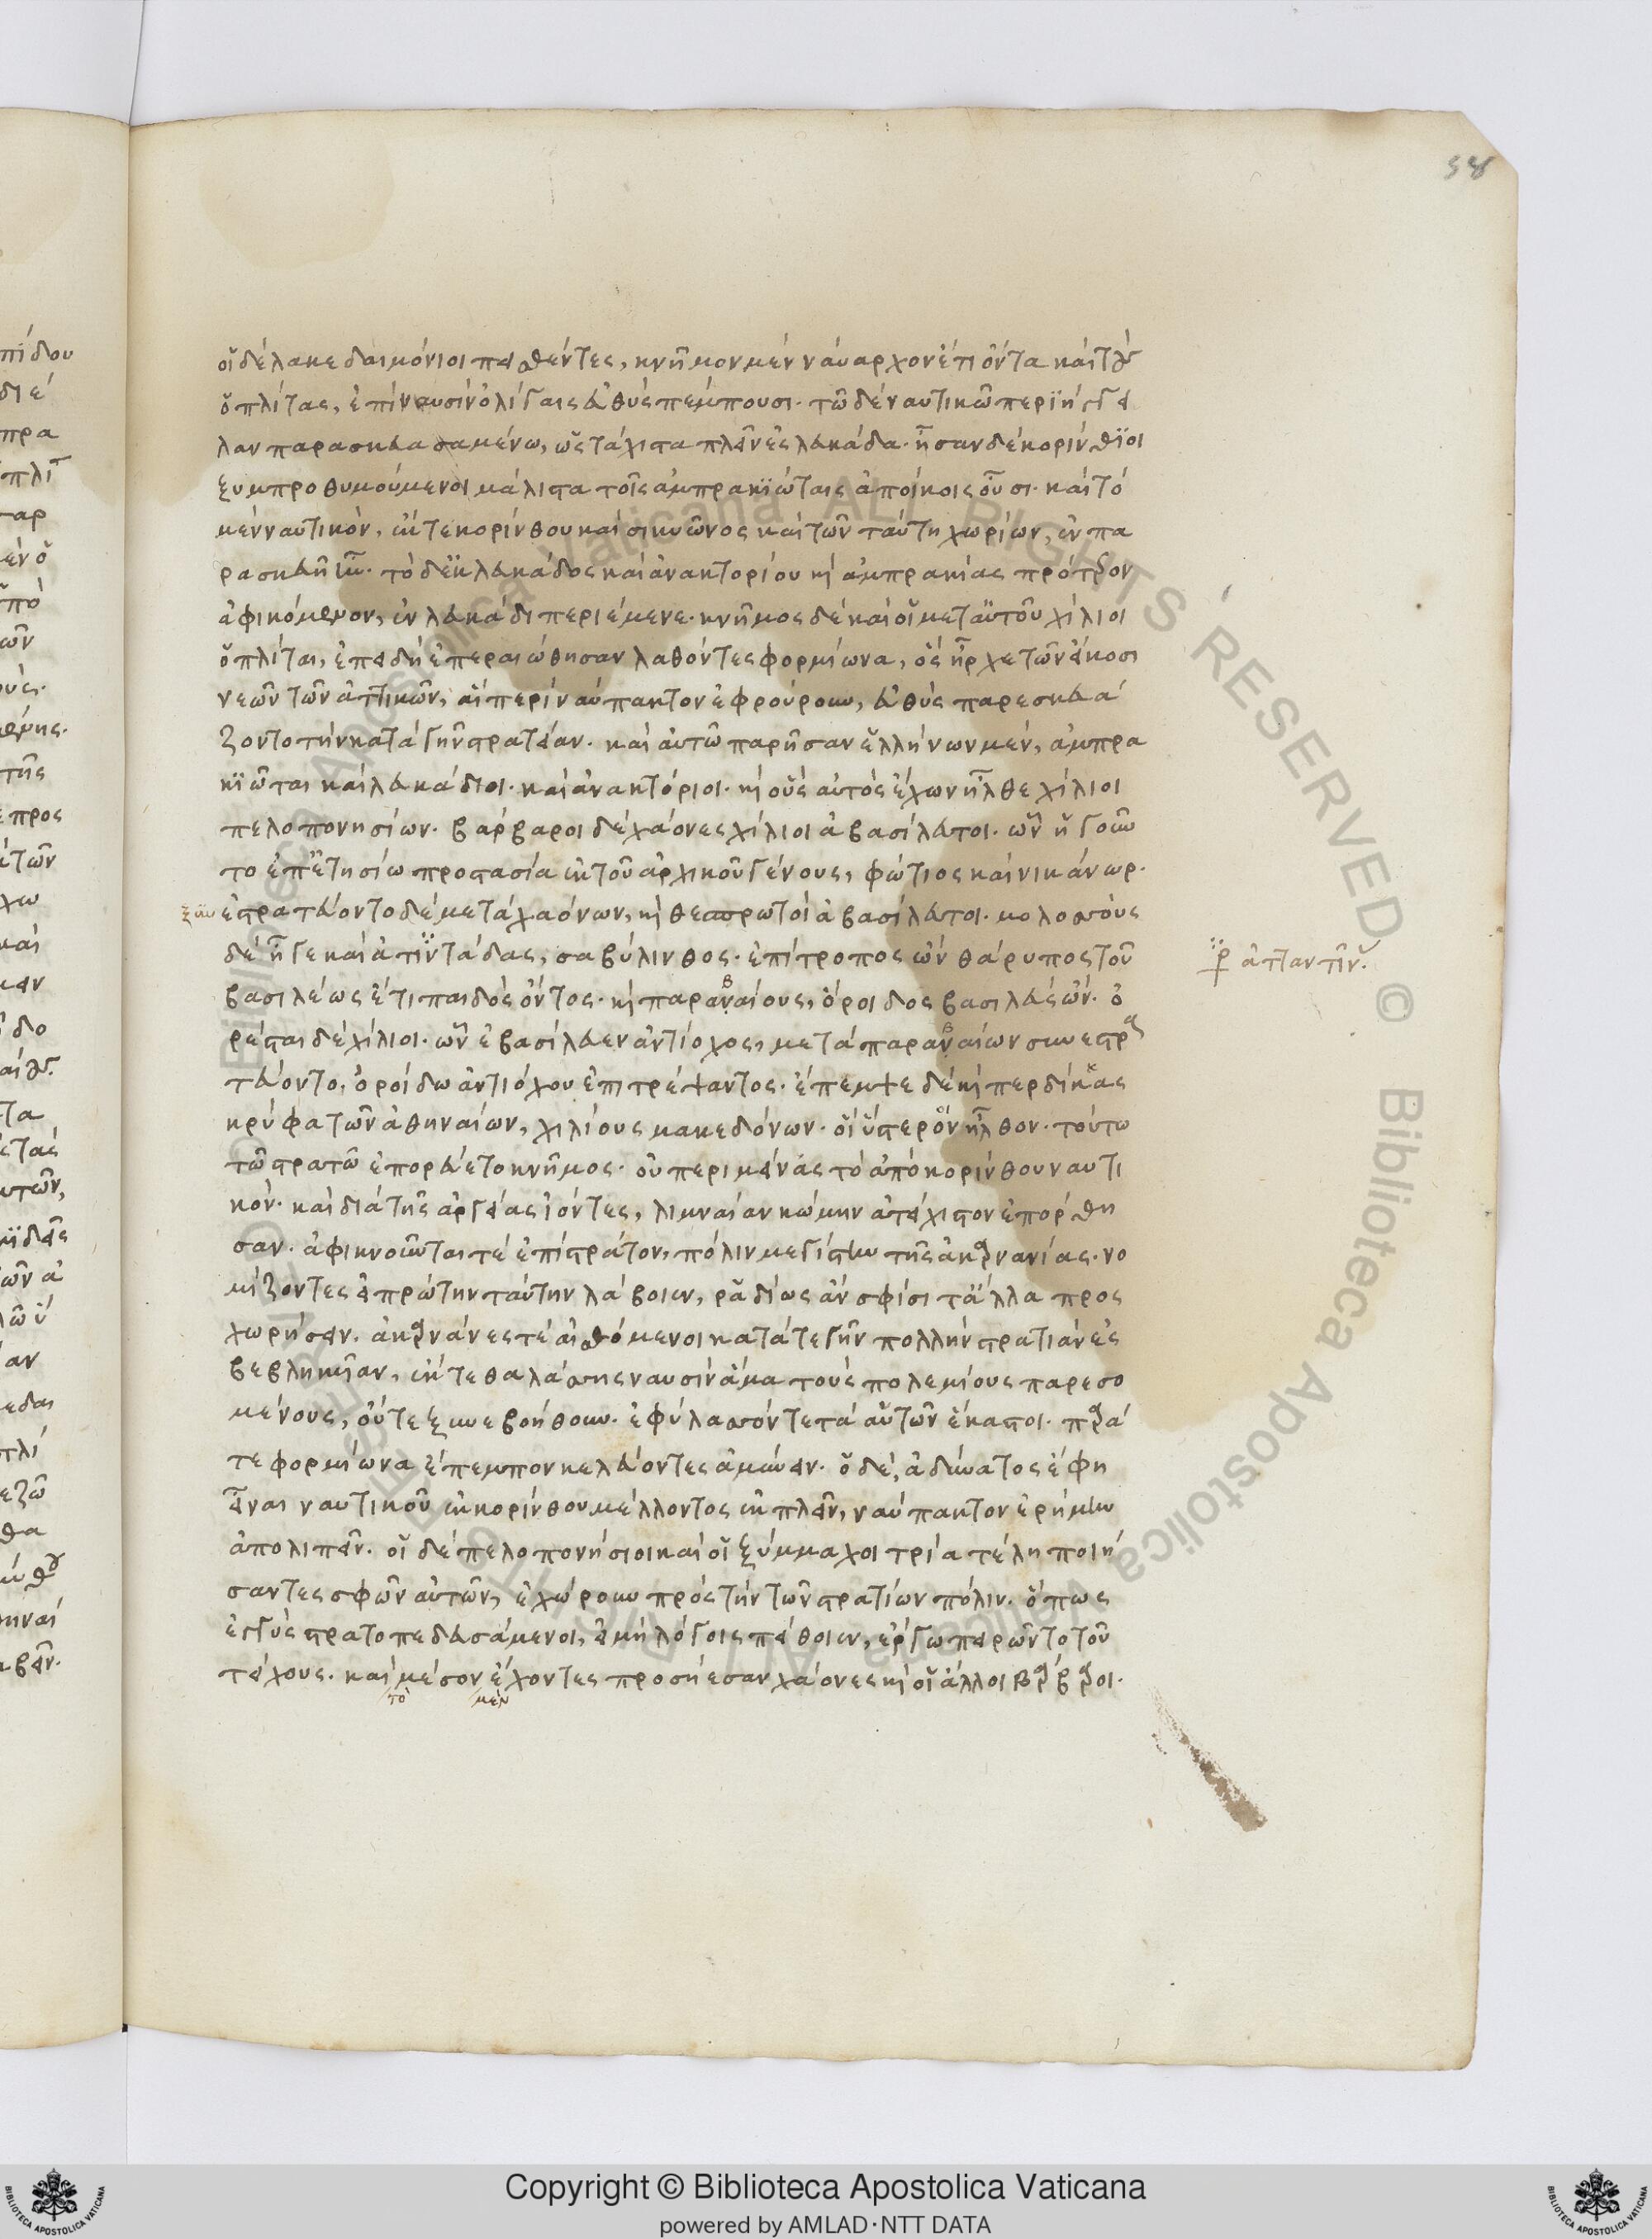 58
οἱ δὲ λακεδαιμόνιοι πεισθέντες, κνῆμον μὲν ναύαρχον ἔτι ὄντα καὶ τοὺς
ὁπλίτας, ἐπὶ ναυσὶν ὀλίγαις εὐθὺς πέμπουσι. τῶ δὲ ναυτικῶ περιήγγει
λαν παρασκευασαμένω, ὡς τάχιστα πλεῖν ἐς λευκάδα. ἦσαν δὲ κορίνθϊοι
ξυμπροθυμούμενοι μάλιστα τοῖς ἀμπρακϊώταις ἀποίκοις οὖσι. καὶ τὸ
μὲν ναυτικὸν, ἔκ τε κορίνθου καὶ σικυῶνος καὶ τῶν ταύτη χωρίων, ἐν πα
ρασκευῆ ἦν. τὸ δ' ἐκ λευκάδος καὶ ἀνακτορίου καὶ ἀμπρακίας πρότερον
ἀφικόμενον, ἐν λευκάδι περιέμενε. κνῆμος δὲ καὶ οἱ μετ' αὐτοῦ χίλιοι
ὁπλίται, ἐπειδὴ ἐπεραιώθησαν λαθόντες φορμίωνα, ὃς ἦρχε τῶν εἴκοσι
νεῶν τῶν ἀττικῶν, αἳ περὶ ναύπακτον ἐφρούρουν, εὐθὺς παρεσκευά
ζοντο τὴν κατὰ γῆν στρατείαν. καὶ αὐτῶ παρῆσαν ἑλλήνων μὲν, ἀμπρα
κϊῶται καὶ λευκάδιοι. καὶ ἀνακτόριοι. καὶ οὓς αὐτὸς ἔχων ἦλθε χίλιοι
πελοπονησίων. βάρβαροι δὲ χάονες χίλιοι ἀβασίλευτοι. ὧν ἡγοῦν
το ἐπ' ἐτησίω προστασία ἐκ τοῦ ἀρχικοῦ γένους, φώτιος καὶ νικάνωρ.
ξυν ἐστρατεύοντο δὲ μετὰ χαόνων, καὶ θεσπρωτοὶ ἀβασίλευτοι. μολοσσοὺς
δὲ ἦγε καὶ ἀτιντάδας, σαβύλινθος. ἐπίτροπος ὢν θάρυπος τοῦ
βασιλέως ἔτι παιδὸς ὄντος. καὶ παραναίους, ὄροιδος βασιλεὺς ὤν. ὀ
ρέσται δὲ χίλιοι. ὧν ἐβασίλευεν ἀντίοχος, μετὰ παραναίων συνεστρα
τεύοντο, ὀροίδω ἀντιόχου ἐπιτρέψαντος. ἔπεμψε δὲ καὶ περδίκκας
κρύφα τῶν ἀθηναίων, χιλίους μακεδόνων. οἳ ὕστερον ἦλθον. τούτω
τῶ στρατῶ ἐπορεύετο κνῆμος. οὐ περιμείνας τὸ ἀπὸ κορίνθου ναυτι
κόν. καὶ διὰ τῆς ἀργείας ἰόντες, λιμναίαν κώμην ἀτείχιστον ἐπόρθη
σαν. ἀφικνοῦνται τὲ ἐπὶ στράτον, πόλιν μεγίστην τῆς ἀκαρνανίας. νο
μίζοντες εἰ πρώτην ταύτην λάβοιεν, ῥαδίως ἂν σφίσι τἆλλα προς
χωρήσειν. ἀκαρνάνες τὲ αἰσθόμενοι κατά τε γῆν πολλὴν στρατιὰν ἐς
βεβληκυῖαν, ἔκ τε θαλάσσης ναυσὶν ἅμα τοὺς πολεμίους παρεσο
μένους, οὔτε ξυνεβοήθουν. ἐφύλασσόν τε τὰ αὑτῶν ἕκαστοι. παρά
τε φορμίωνα ἔπεμπον κελεύοντες ἀμύνειν. ὁ δὲ, ἀδύνατος ἔφη
εἶναι ναυτικοῦ ἐκ κορίνθου μέλλοντος ἐκπλεῖν, ναύπακτον ἐρήμην
ἀπολιπεῖν. οἱ δὲ πελοπονήσιοι καὶ οἱ ξύμμαχοι τρία τέλη ποιή
σαντες σφῶν αὐτῶν, ἐχώρουν πρὸς τὴν τῶν στρατίων πόλιν. ὅπως
ἐγγὺς στρατοπεδευσάμενοι, εἰ μὴ λόγοις πείθοιεν, ἔργω πειρῶντο τοῦ
τείχους. καὶ μέσον ἔχοντες προσήεσαν χάονες καὶ οἱ ἄλλοι βάρβαροι.
τὸ μὲν